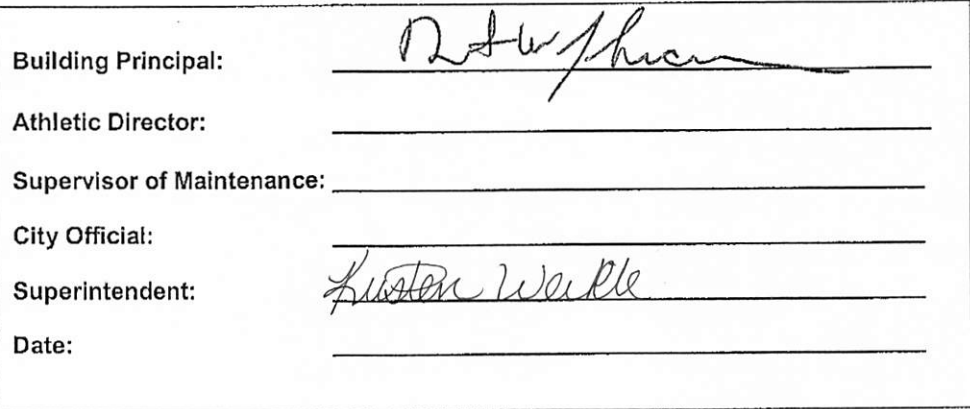 Building Principal:
Athletic Director:
Supervisor of Maintenance:
City Official:
Superintendent: Kristen Weikle
Date: